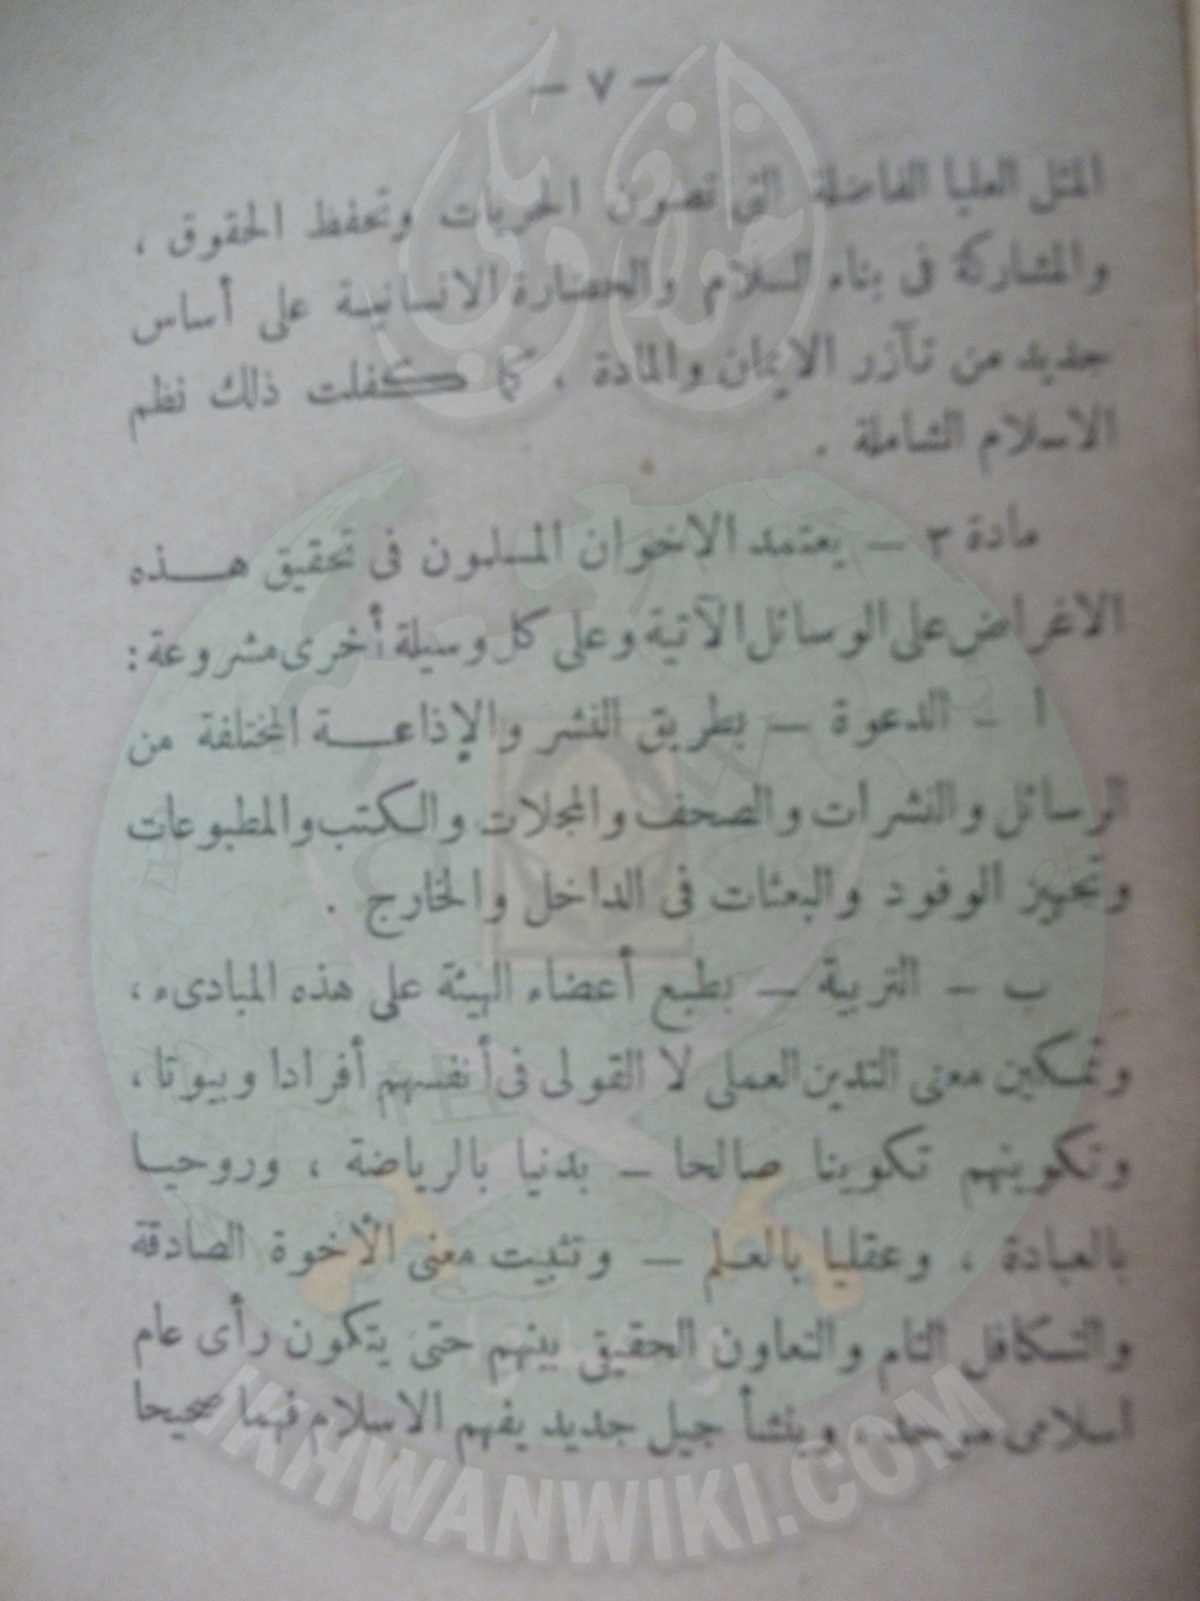 — ٧ —
المثل العليا الفاضلة التى تصون الحريات وتحفظ الحقوق ،
والمشاركة فى بناء السلام والحضارة الانسانية على أساس
جديد من تآزر الايمان والمادة ، كما كفلت ذلك نظم
الاسلام الشاملة .
مادة ٣ — يعتمد الاخوان المسلمون فى تحقيق هـــذه
الاغراض على الوسائل الآتية وعلى كل وسيلة أخرى مشروعة :
ا — الدعوة — بطريق النشر والإذاعـــة المختلفة من
الرسائل والنشرات والصحف والمجلات والكتب والمطبوعات
وتجهيز الوفود والبعثات فى الداخل والخارج .
ب — التربية — بطبع أعضاء الهيئة على هذه المبادىء ،
وتمكين معنى التدين العملى لا القولى فى أنفسهم أفرادا وبيوتا ،
وتكوينهم تكوينا صالحا — بدنيا بالرياضة ، وروحيـا
بالعبادة ، وعقليا بالعـلم — وتثبيت معنى الأخوة الصادقة
والتكافل التام والتعاون الحقيقى بينهم حتى يتكون رأى عام
اسلامى موحد ، وينشأ جيل جديد يفهم الاسلام فهما صحيحا
إخوان ويكي
IKHWANWIKI.COM